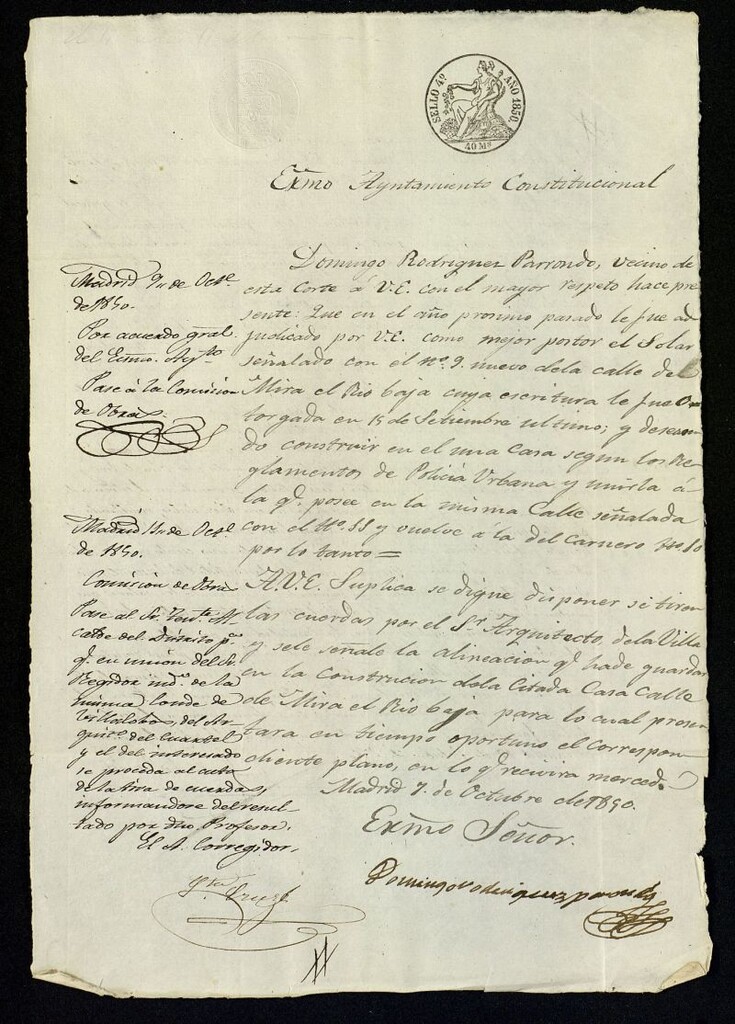 SELLO 4º AÑO 1850.
40 Ms
Exmo Ayntamiento Constitucional
Domingo Rodriguez Parrondo, vecino de
esta Corte á V.E. con el mayor respeto hace pre
sente: Que en el año proximo pasado le fue ad
judicado por V.E. como mejor postor el Solar
señalado con el nº 9. nuevo dela calle del
Mira el Rio baja cuya escritura le fue O
torgada en 15 de Setiembre ultimo; y desean
do construir en el una Casa segun los Re
glamentos de Policia Urbana y unirla á
la q. posee en la misma Calle señalada
con el Nº. 11 y vuelve á la del Carnero Nº. 10
por lo tanto =
A.V.E. Suplica se digne disponer se tiren
las cuerdas por el Sr. Arquitecto dela Villa
y sele señale la alineacion q. hade guardar
en la Construcion dela Citada Casa Calle
de Mira el Rio baja para lo cual presen
tara en tiempo oportuno el Correspon
diente plano, en lo q. recivira merced.
Madrid 7. de Octubre de 1850.
Exmo Señor.
Domingo Rodriguez parrondo
Madrid 9,, de Octe.
de 1850.
Por acuerdo gral.
del Exmo. Ayto
Pase á la Comision
de Obras.
Madrid 11,, de Oct.
de 1850.
Comision de Obras
Pase al Sr. Tente. Al
calde del Distrito pa.
q. en union del Sr.
Regidor de la
misma Conde de
Villalobos, del Ar
quito. del Cuartel
y el del interesado
se proceda al acto
de la tira de cuerdas,
informandose del resul
tado por dho Profesor.
El A. Corregidor,